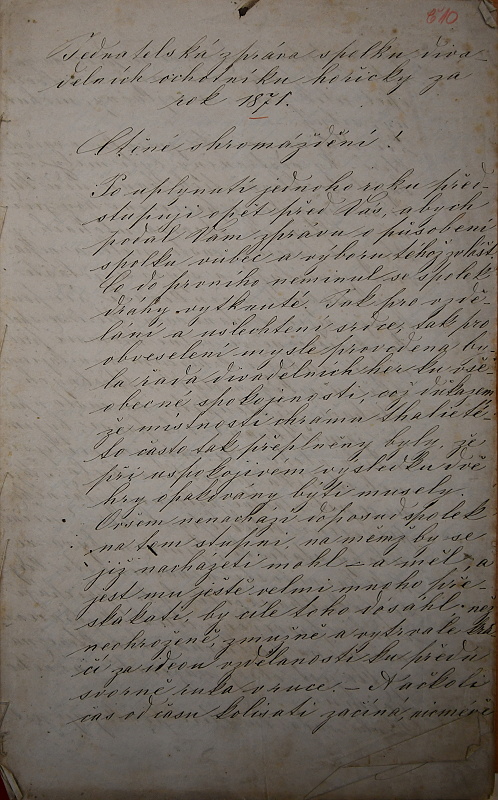 510
Jednatelská zpráva spolku diva-
delních ochotníku hořický za
rok 1871.
Ctěné shromáždění!
Po uplynutí jednoho roku před-
stupuji opět před Vás, abych
podal Vám zprávu o působení
spolku vůbec a výboru téhož zvlášť.
Co do prvního neminul se spolek
dráhy vytknuté. Jak pro vzdě-
lání a ušlechtění srdce, tak pro
obveselení mysle provedena by-
la řada divadelních her ku vše-
obecné spokojenosti, což důkazem
že místnosti chrámu Thalie té-
to často tak přeplněny byly, že
při uspokojivém výsledku dvě
hry opakovány býti musely.
Ovšem nenachází doposud spolek
na tom stupni, na němž by se
již nacházeti mohl – a měl, a
jest mu ještě velmi mnoho pře-
skákati, by cíle toho dosáhl, než
neohroženě, zmužně a vytrvale krá-
čí za ideou vzdělanosti ku předu
svorně ruka v ruce. – Ačkoli
čas od času kolisati začíná, nicméně